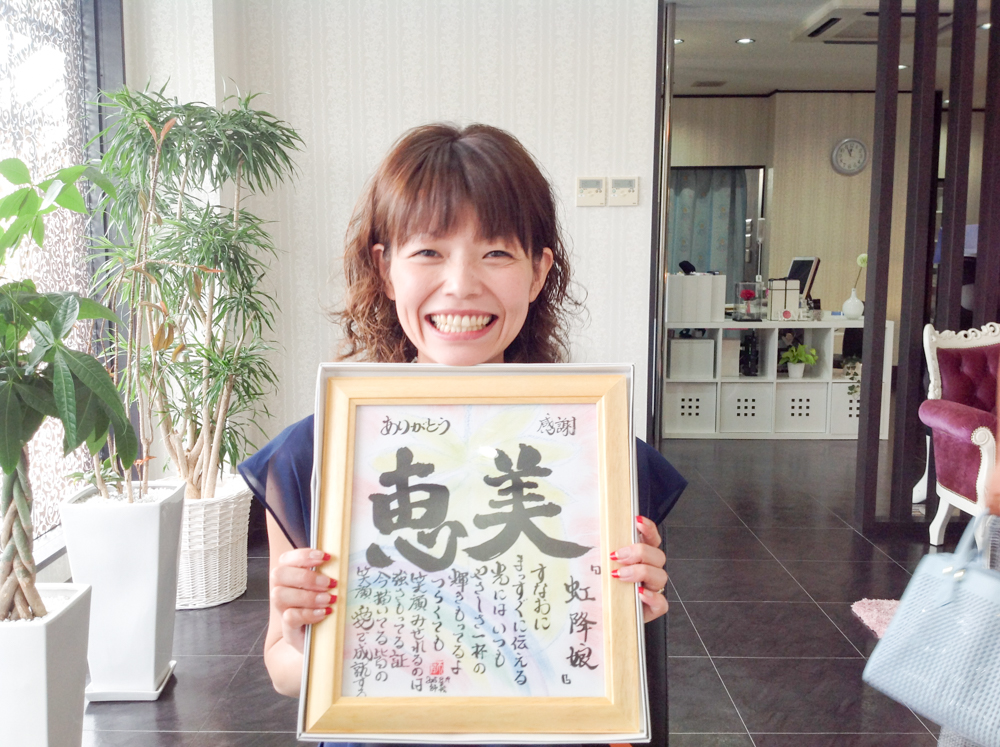 ありがとう 感謝
恵美
「虹降娘」
すなおに
まっすぐに伝える
光にはいつも
やさしさ一杯の
輝きもってるよ
つらくても
笑顔みせれるのは
強さもってる証
いてる皆の
笑顔愛で成就する